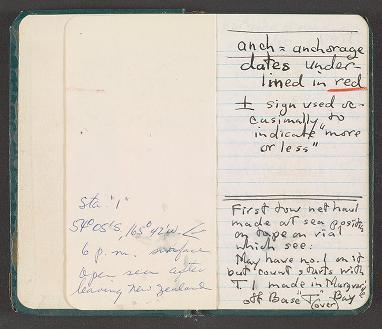 Sta. "1"
54°05's, 165°42'W.
6 p.m. surface
open sea after
leaving New Zealand
anch = anchorage
dates under-
lined in red
± sign used oc-
casionally to
indicate "more
or less"
First tow net haul
made at sea position
on tape on vial
which see:
May have no. 1 on it
but count starts with
T 1 made in Marguerite
off Base "T" Bay
(over)